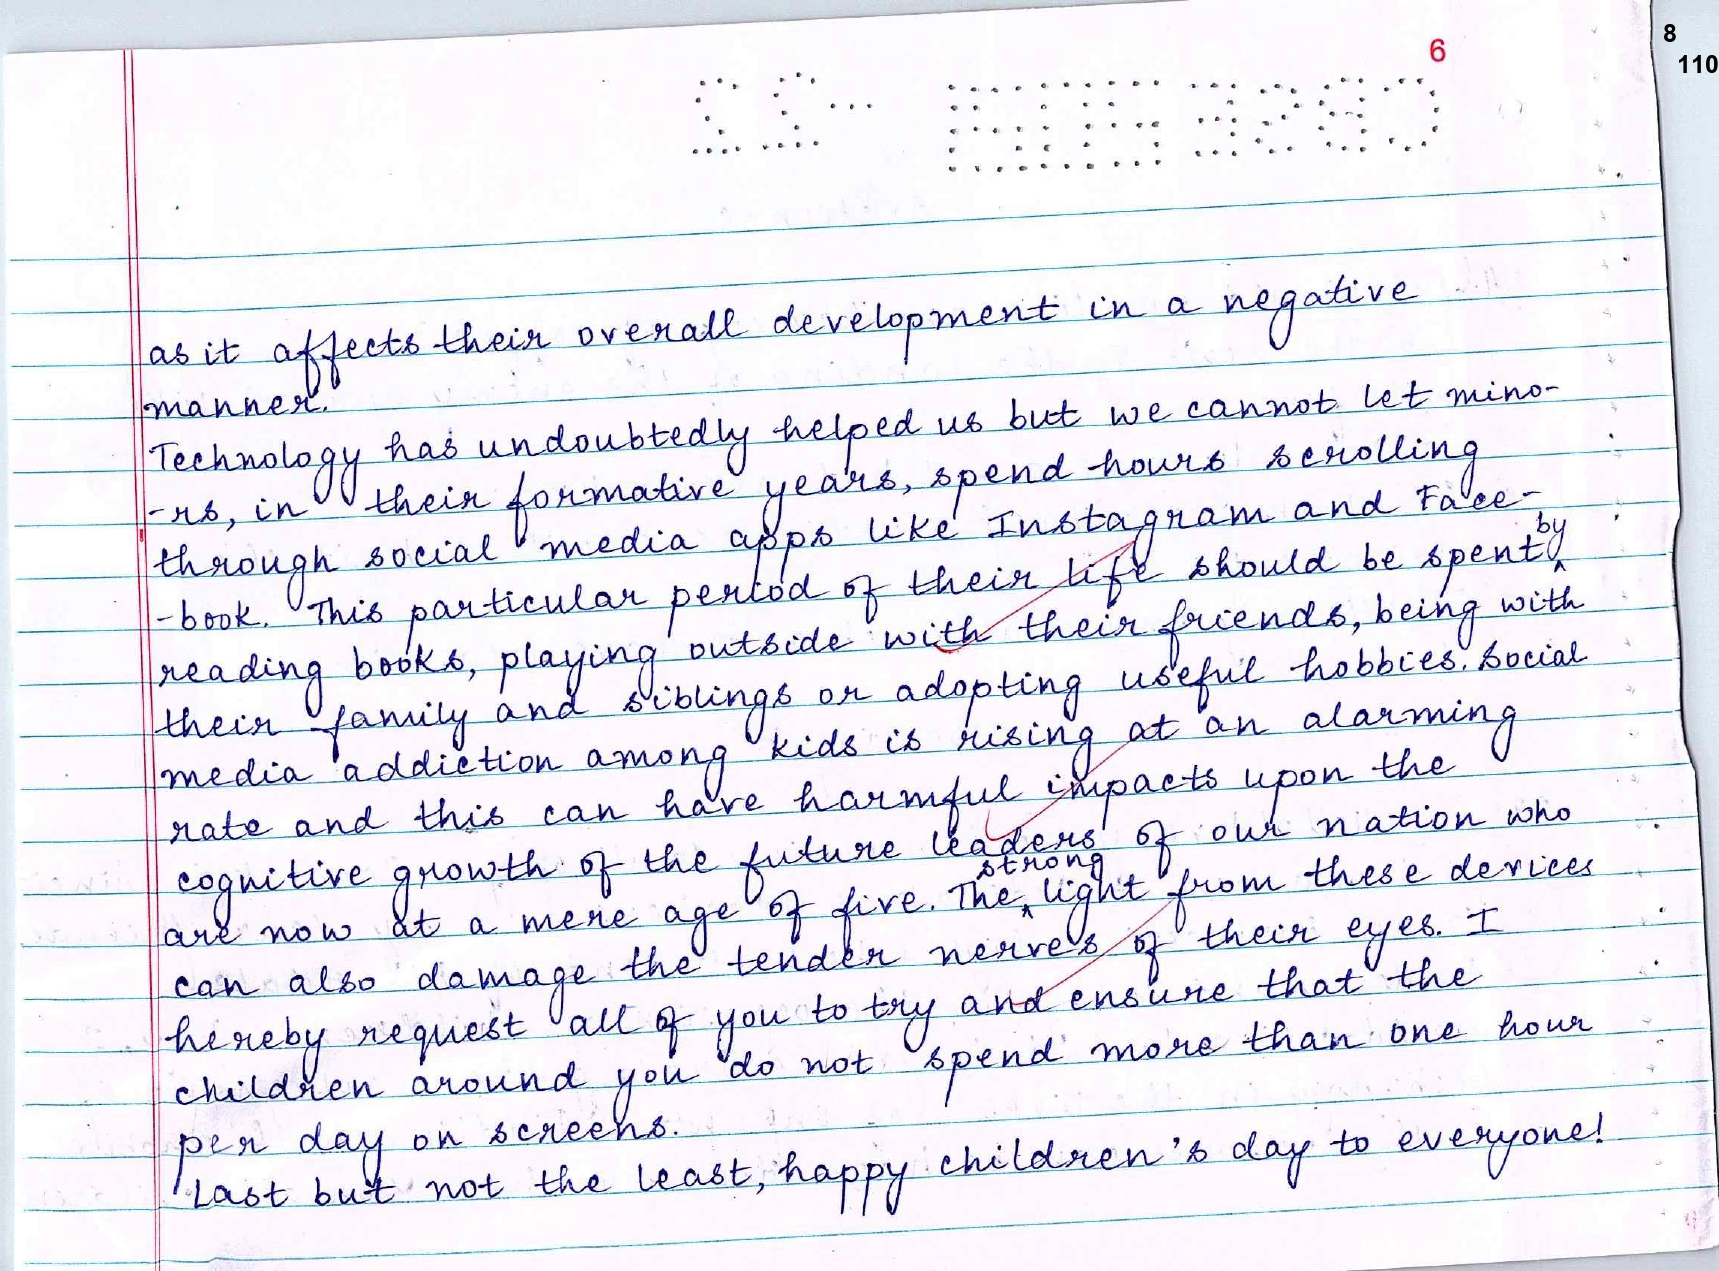 8
110
6
as it affects their overall development in a negative
manner.
Technology has undoubtedly helped us but we cannot let mino-
-rs, in their formative years, spend hours scrolling
through social media apps like Instagram and Face-
by
-book. This particular period of their life should be spent ^
reading books, playing outside with their friends, being with
their family and siblings or adopting useful hobbies. Social
media addiction among kids is rising at an alarming
rate and this can have harmful impacts upon the
cognitive growth of the future leaders of our nation who
strong
are now at a mere age of five. The ^ light from these devices
can also damage the tender nerves of their eyes. I
hereby request all of you to try and ensure that the
children around you do not spend more than one hour
per day on screens.
Last but not the least, happy children's day to everyone!